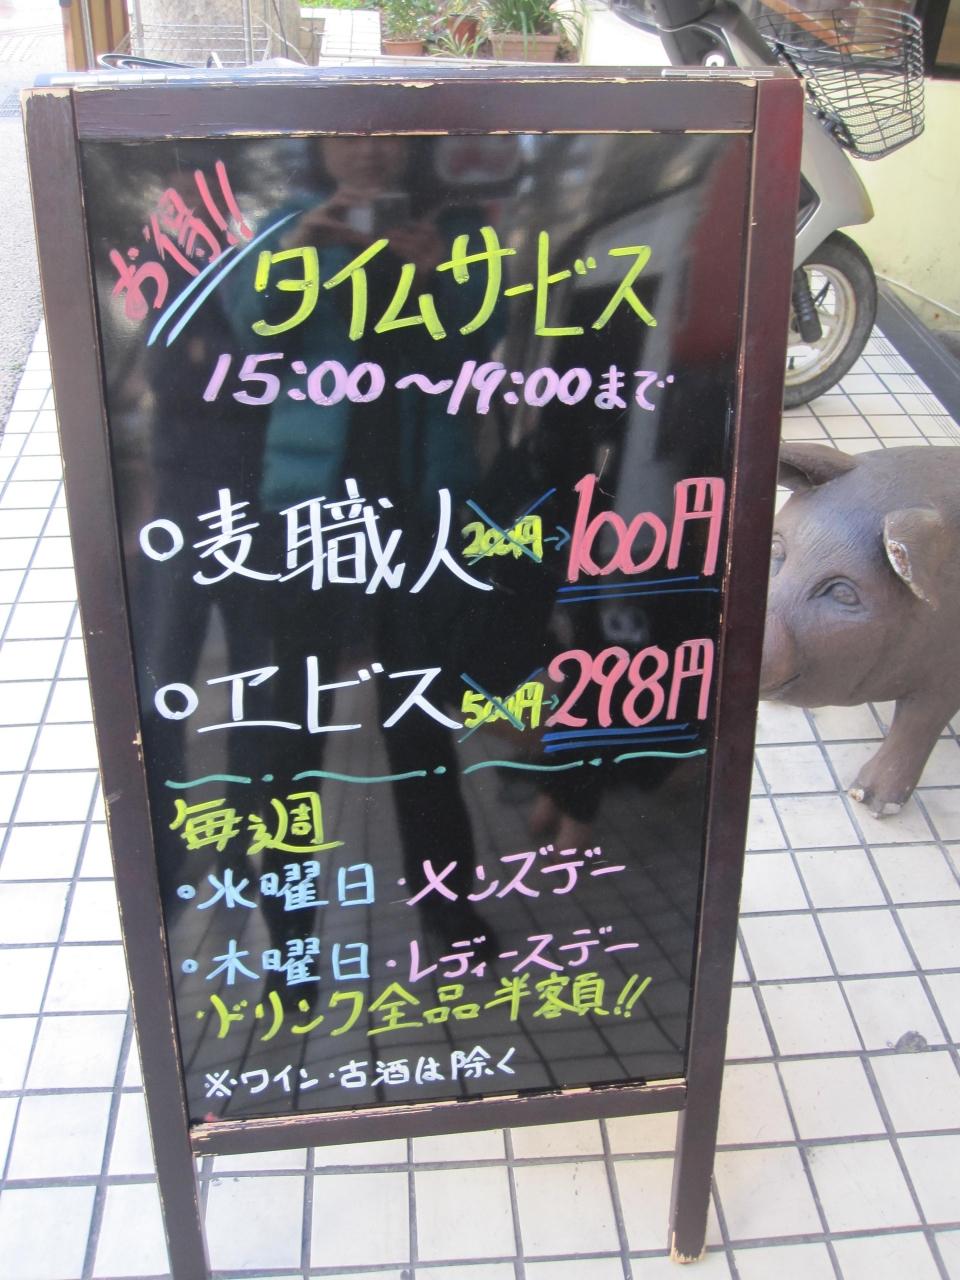 お得!!
タイムサービス
15:00〜19:00まで
○麦職人 200円→100円
○ヱビス 500円→298円
毎週
○水曜日・メンズデー
○木曜日・レディースデー
ドリンク全品半額!!
※ワイン・古酒は除く